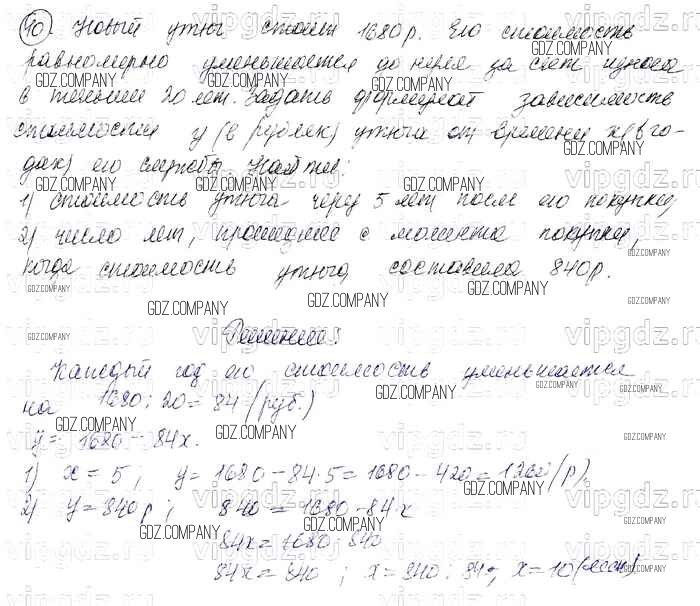 40. Новый утюг стоит 1680 р. Его стоимость
равномерно уменьшается до нуля за счет износа
в течении 20 лет. Задать формулой зависимость
стоимости y (в рублях) утюга от времени x (в го-
дах) его службы. Найти:
1) стоимость утюга через 5 лет после его покупки,
2) число лет, прошедшее с момента покупки,
когда стоимость утюга составила 840 р.
Решение:
Каждый год его стоимость уменьшается
на 1680 : 20 = 84 (руб.)
y = 1680 - 84x.
1) x = 5; y = 1680 - 84·5 = 1680 - 420 = 1260 (р).
2) y = 840 р; 840 = 1680 - 84·x
84x = 1680 - 840
84x = 840; x = 840 : 84; x = 10 (лет)
GDZ.COMPANY
vipgdz.com